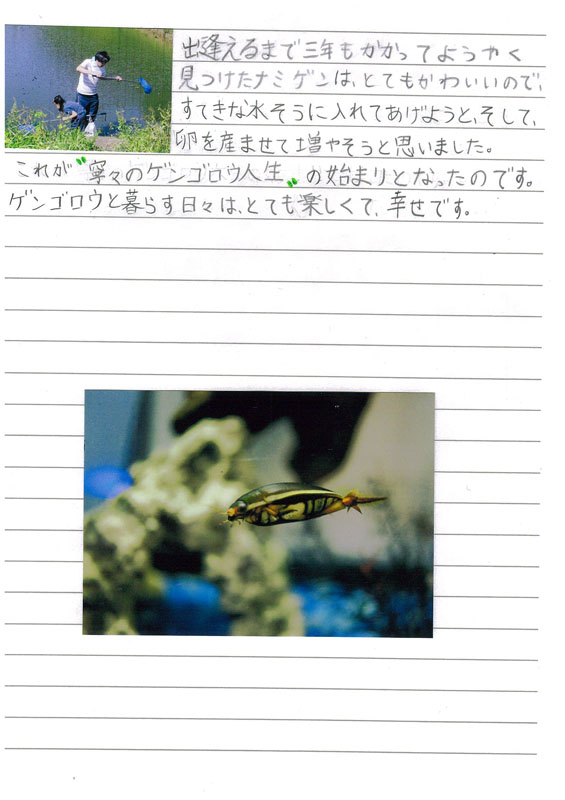 出逢えるまで三年もかかってようやく
見つけたナミゲンは、とてもかわいいので、
すてきな水そうに入れてあげようと、そして、
卵を産ませて増やそうと思いました。
これが〝寧々のゲンゴロウ人生〟の始まりとなったのです。
ゲンゴロウと暮らす日々は、とても楽しくて、幸せです。